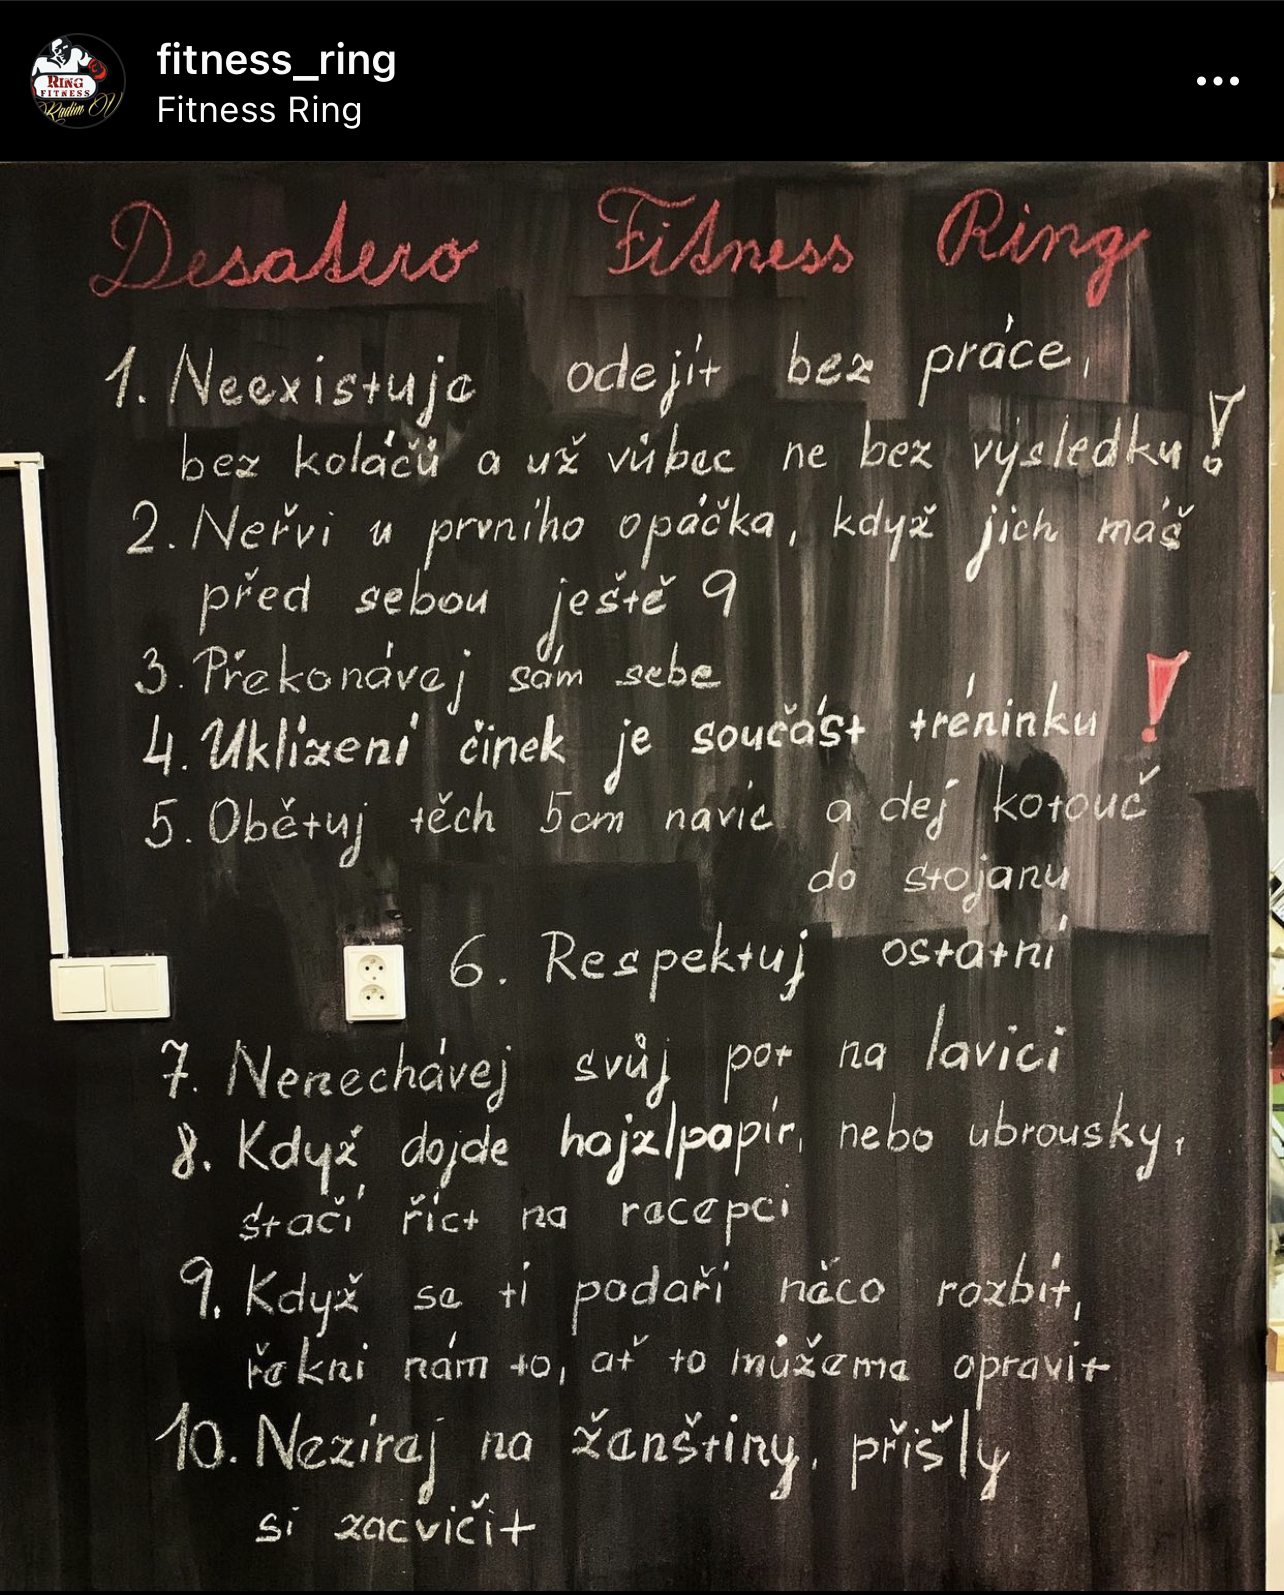 fitness_ring
Fitness Ring
RING
FITNESS
Radim OV
Desatero Fitness Ring
1. Neexistuje odejít bez práce,
bez koláčů a už vůbec ne bez výsledku!
2. Neřvi u prvního opáčka, když jich máš
před sebou ještě 9
3. Překonávej sám sebe
4. Uklízení činek je součást tréninku!
5. Obětuj těch 5cm navíc a dej kotouč
do stojanu
6. Respektuj ostatní
7. Nenechávej svůj pot na lavici
8. Když dojde hajzlpapír, nebo ubrousky,
stačí říct na recepci
9. Když se ti podaří něco rozbít,
řekni nám to, ať to můžeme opravit
10. Nezírej na ženštiny, přišly
si zacvičit